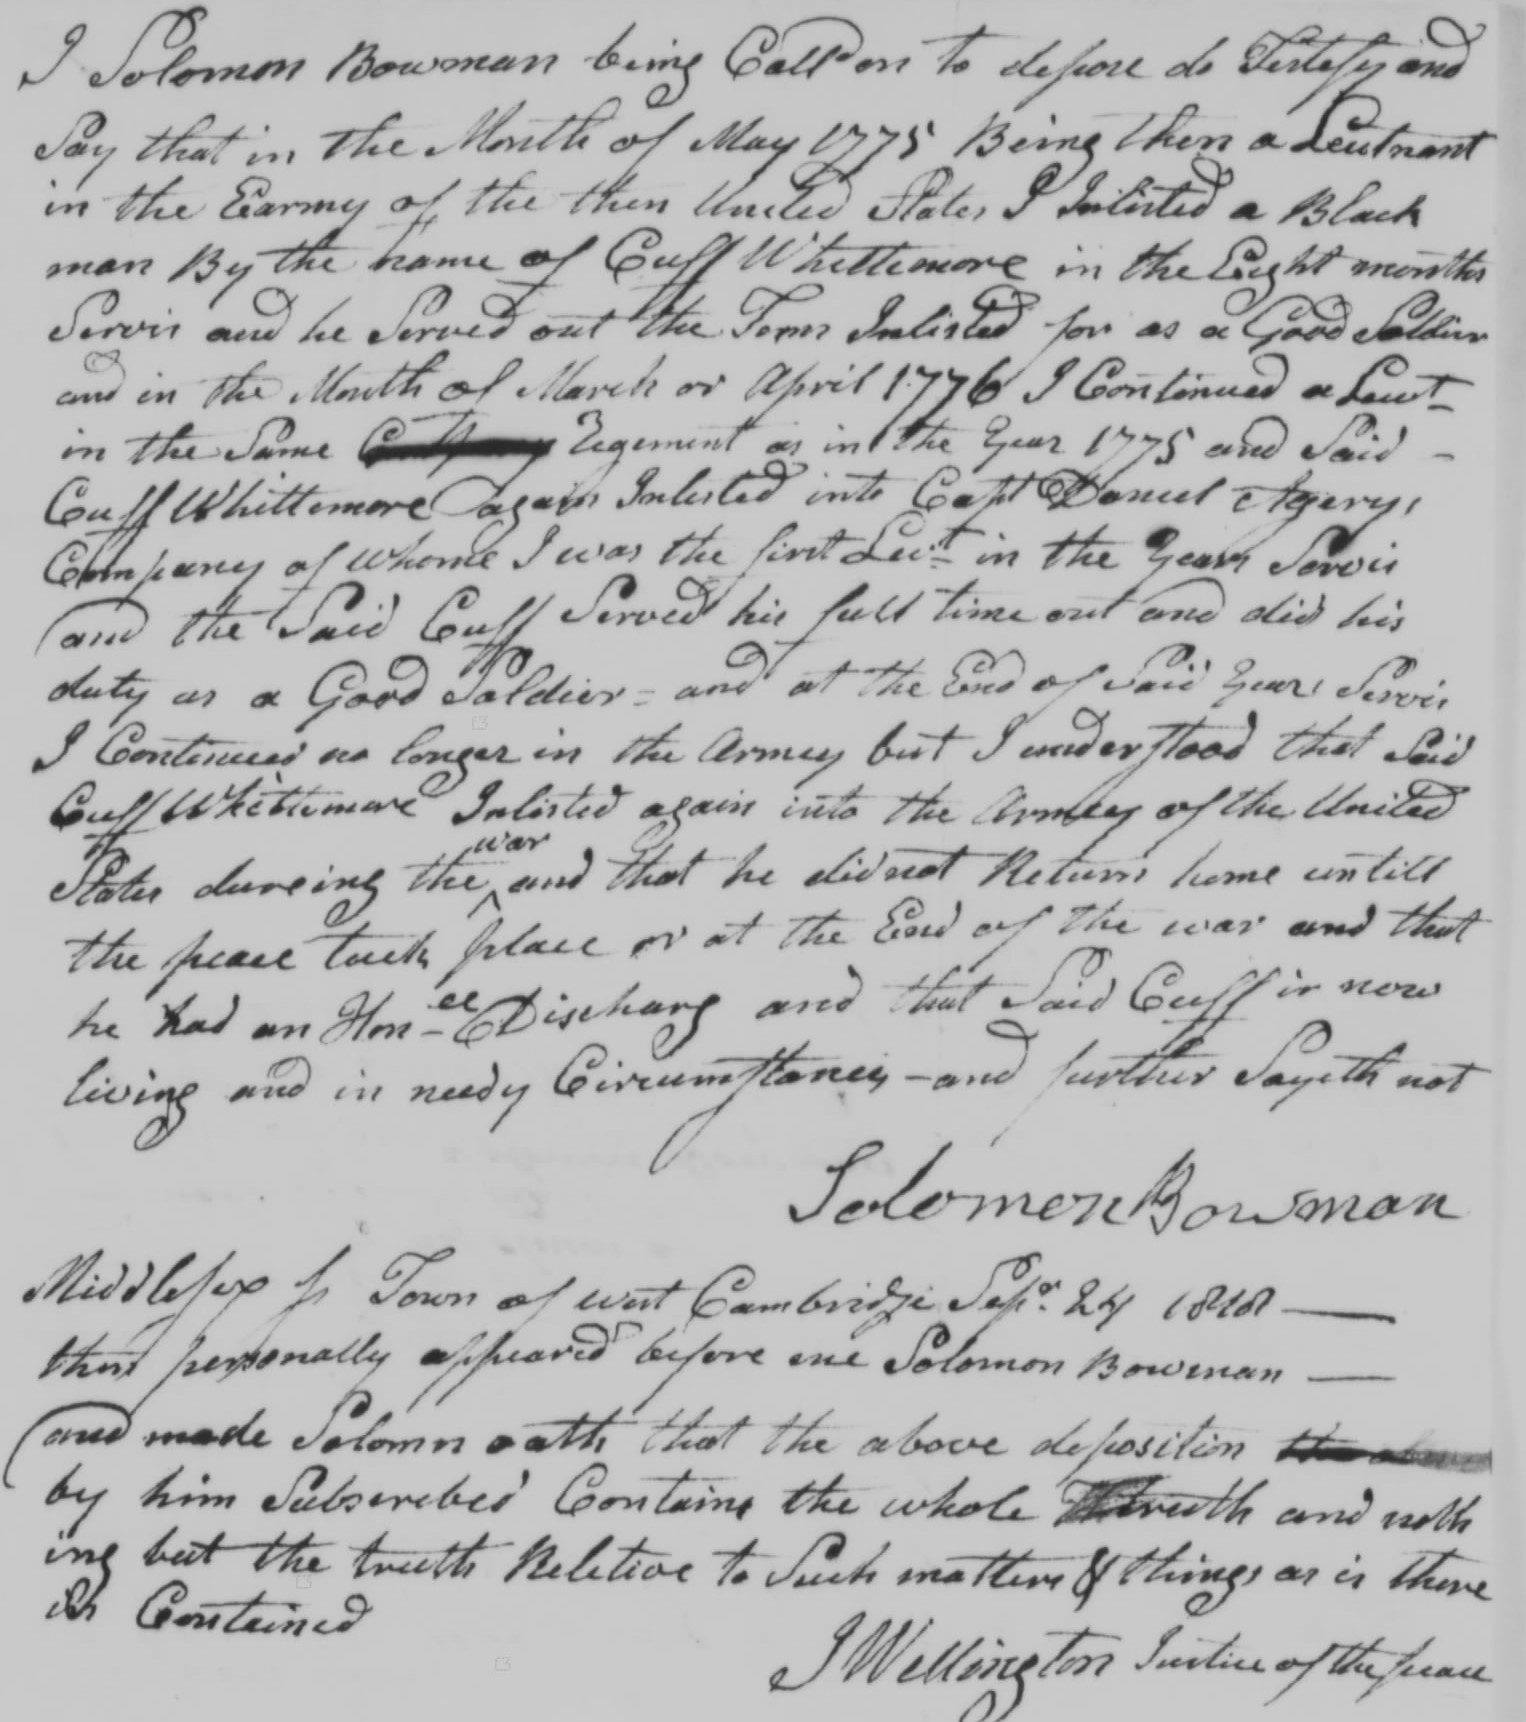 I Solomon Bowman being Call'd on to depose do Testefy and
Say that in the Month of May 1775 Being then a Leutnant
in the Earmy of the then United States I Inlisted a Black
man By the name of Cuff Whittemore in the Eight months
Servis and he Served out the Term Inlisted for as a Good Soldier
and in the Month of March or April 1776 I Continued a Leut
in the Same Regement as in the Year 1775 and Said -
Cuff Whittemore again Inlisted into Capt Daniel Egerys
Company of whome I was the first Leut in the Years Servis
and the Said Cuff Served his full time out and did his
duty as a Good Soldier - and at the End of Said Years Servis
I Continued no longer in the Armey but I understood that Said
Cuff Whittemore Inlisted again into the Armey of the United
States dureing the war and that he did not Return home untill
the peace tuck place or at the End of the war and that
he had an Hon-ee Discharg and that Said Cuff is now
living and in needy Circumstances - and further Sayeth not
Solomon Bowman
Middlesex ss Town of west Cambridge Sepr. 24 1818
then personally appeared before me Solomon Bowman
and made Solomn oath that the above deposition
by him Subscrebed Contains the whole truth and noth
ing but the truth Reletive to Such matters & things as is there
in Contained
J Wellington Justice of the peace